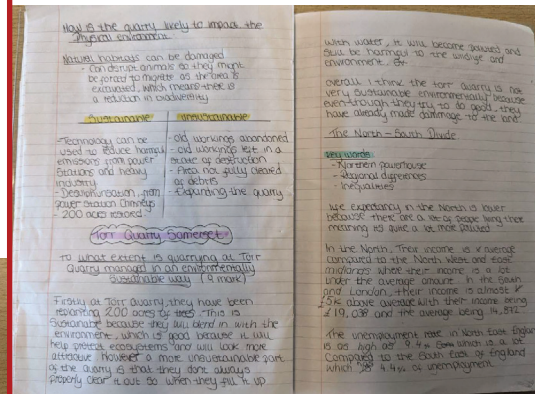 How is the quarry likely to impact the
Physical environment
Natural habitats can be damaged
- Can disrupt animals so they might
be forced to migrate as the area is
excavated, which means there is
a reduction in biodiversity
Sustainable
Unsustainable
- Technology can be
used to reduce harmful
emissions from power
stations and heavy
industry
- Desulphurisation from
power station chimneys
- 200 acres restored
- Old workings abandoned
- Old workings left in a
state of destruction
- Area not fully cleared
of debris
- Expanding the quarry
Torr Quarry Somerset
To what extent is quarrying at Torr
Quarry managed in an environmentally
sustainable way (9 mark)
Firstly at Torr Quarry, they have been
replanting 200 acres by trees. This is
sustainable because they will blend in with the
environment, which is good because it will
help protect ecosystems and will look more
attractive. However a more unsustainable part
of the quarry is that they dont always
properly clear it out so when they fill it up
with water, it will become polluted and
still be harmful to the wildlife and
environment.
Overall I think the torr quarry is not
very sustainable environmentally because
even though they try to do good, they
have already made dammage to the land.
The North - South Divide
Key words
- Northern powerhouse
- Regional differences
- Inequalities
Life expectancy in the North is lower
because there are a lot of people living there
meaning its quite a lot more polluted
In the North, Their income is average
compared to the North West and east
midlands where their income is a lot
under the average amount. In the South
and London, their income is almost
£5k above average with their income being
£19,038 and the average being 14,872
The unemployment rate in North East England
is as high as 9.4% which is a lot
Compared to the South East of England
which is 4.4% of unemployment.